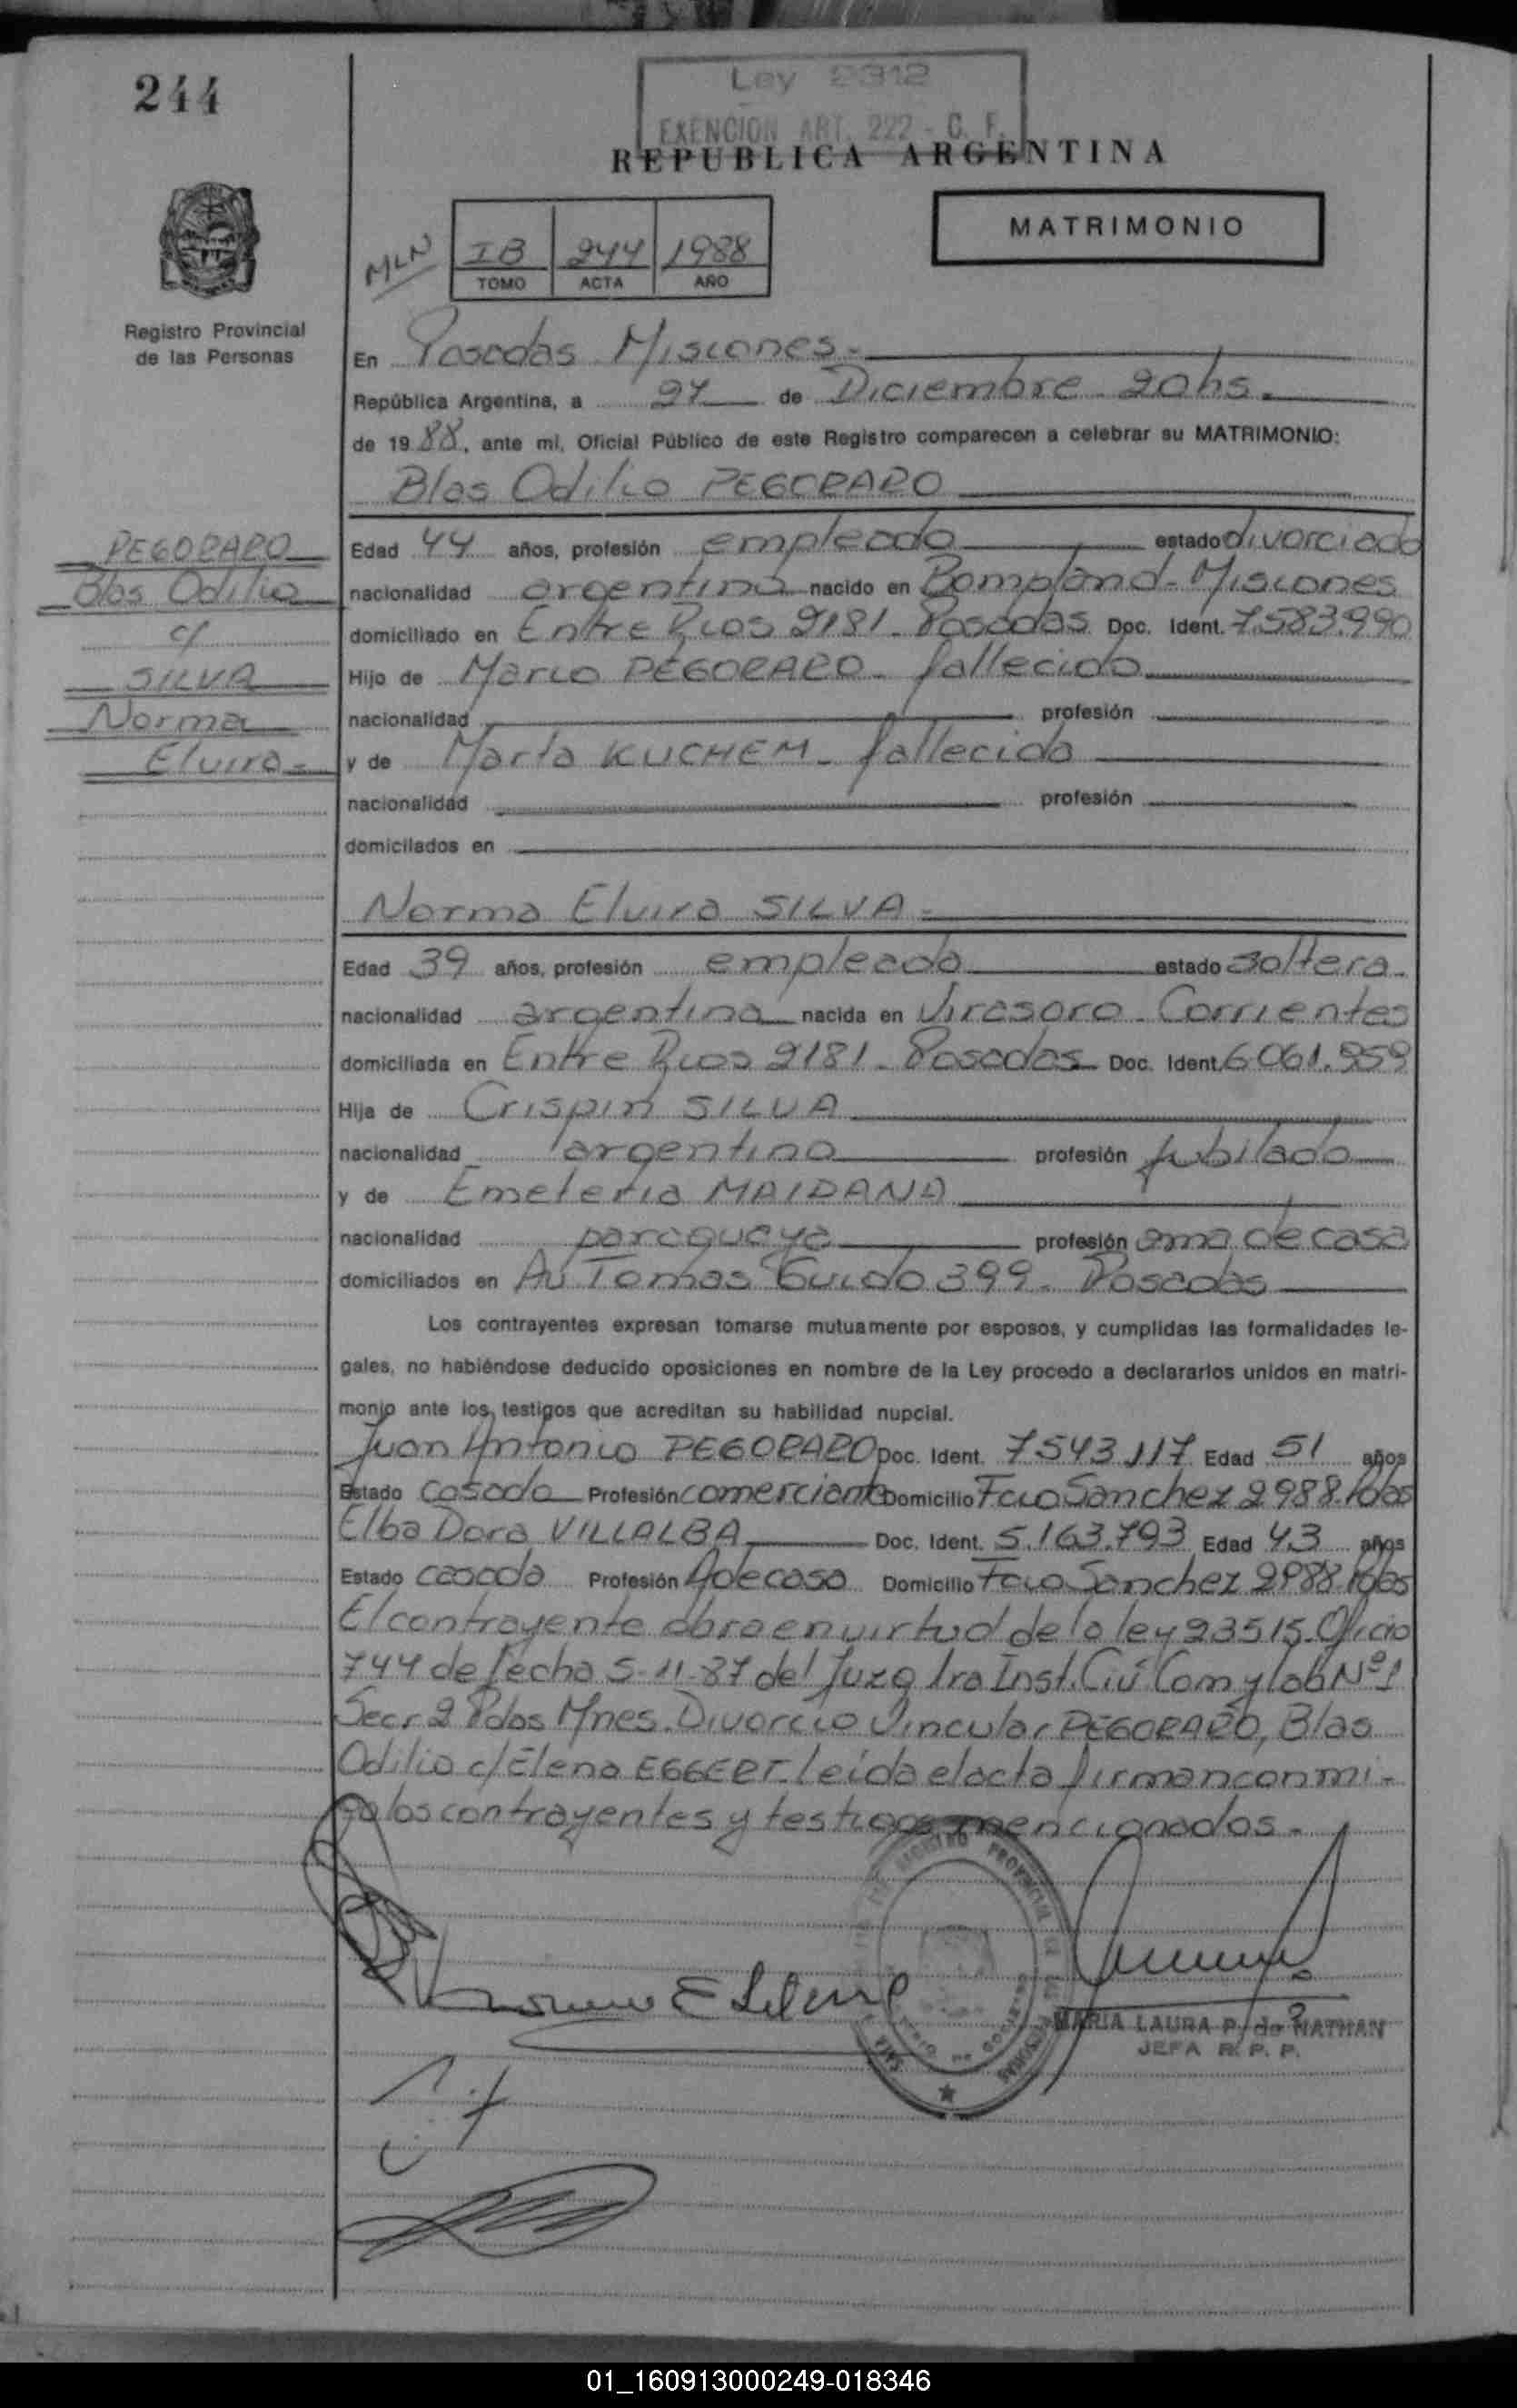 244
Ley 2312
EXENCION ART. 222 - C. F.
REPUBLICA ARGENTINA
MATRIMONIO
MLN
IB 244 1988
TOMO ACTA AÑO
Registro Provincial
de las Personas
PEGORARO
Blas Odilio
c/
SILVA
Norma
Elvira-
En Posadas Misiones-
República Argentina, a 27 de Diciembre 20hs.
de 1988, ante mi, Oficial Público de este Registro comparecen a celebrar su MATRIMONIO:
Blas Odilio PEGORARO
Edad 44 años, profesión empleado estado divorciado
nacionalidad argentina nacido en Bompland-Misiones
domiciliado en Entre Rios 2181-Posadas Doc. Ident. 7.583.990
Hijo de Marco PEGORARO- fallecido
nacionalidad profesión
y de Marta KUCHEM- fallecida
nacionalidad profesión
domicilados en
Norma Elvira SILVA-
Edad 39 años, profesión empleada estado soltera-
nacionalidad argentina nacida en Virasoro-Corrientes
domiciliada en Entre Rios 2181-Posadas Doc. Ident. 6.061.959
Hija de Crispin SILVA
nacionalidad argentina profesión jubilado
y de Emeteria MAIDANA
nacionalidad paraguaya profesión ama de casa
domiciliados en Av Tomas Guido 399- Posadas
Los contrayentes expresan tomarse mutuamente por esposos, y cumplidas las formalidades le-
gales, no habiéndose deducido oposiciones en nombre de la Ley procedo a declararlos unidos en matri-
monio ante los testigos que acreditan su habilidad nupcial.
Juan Antonio PEGORARO Doc. Ident. 7543.117 Edad 51 años
Estado casado Profesión comerciante Domicilio Fco Sanchez 2988-Pdas
Elba Dora VILLALBA Doc. Ident. 5.163.793 Edad 43 años
Estado casada Profesión Adecasa Domicilio Fco Sanchez 2988-Pdas
El contrayente obra en virtud de la ley 23515-Oficio
744 de fecha 5-11-87 del Juzg 1ra Inst. Civ Com y lab Nº1
Secr 2 Pdas Mnes. Divorcio Vincular PEGORARO, Blas
Odilio c/ Elena EGGERT-leida el acta firman con mi-
go los contrayentes y testigos mencionados-
Norma E Silva
MARIA LAURA P. de NATHAN
JEFA R. P. P.
01_160913000249-018346